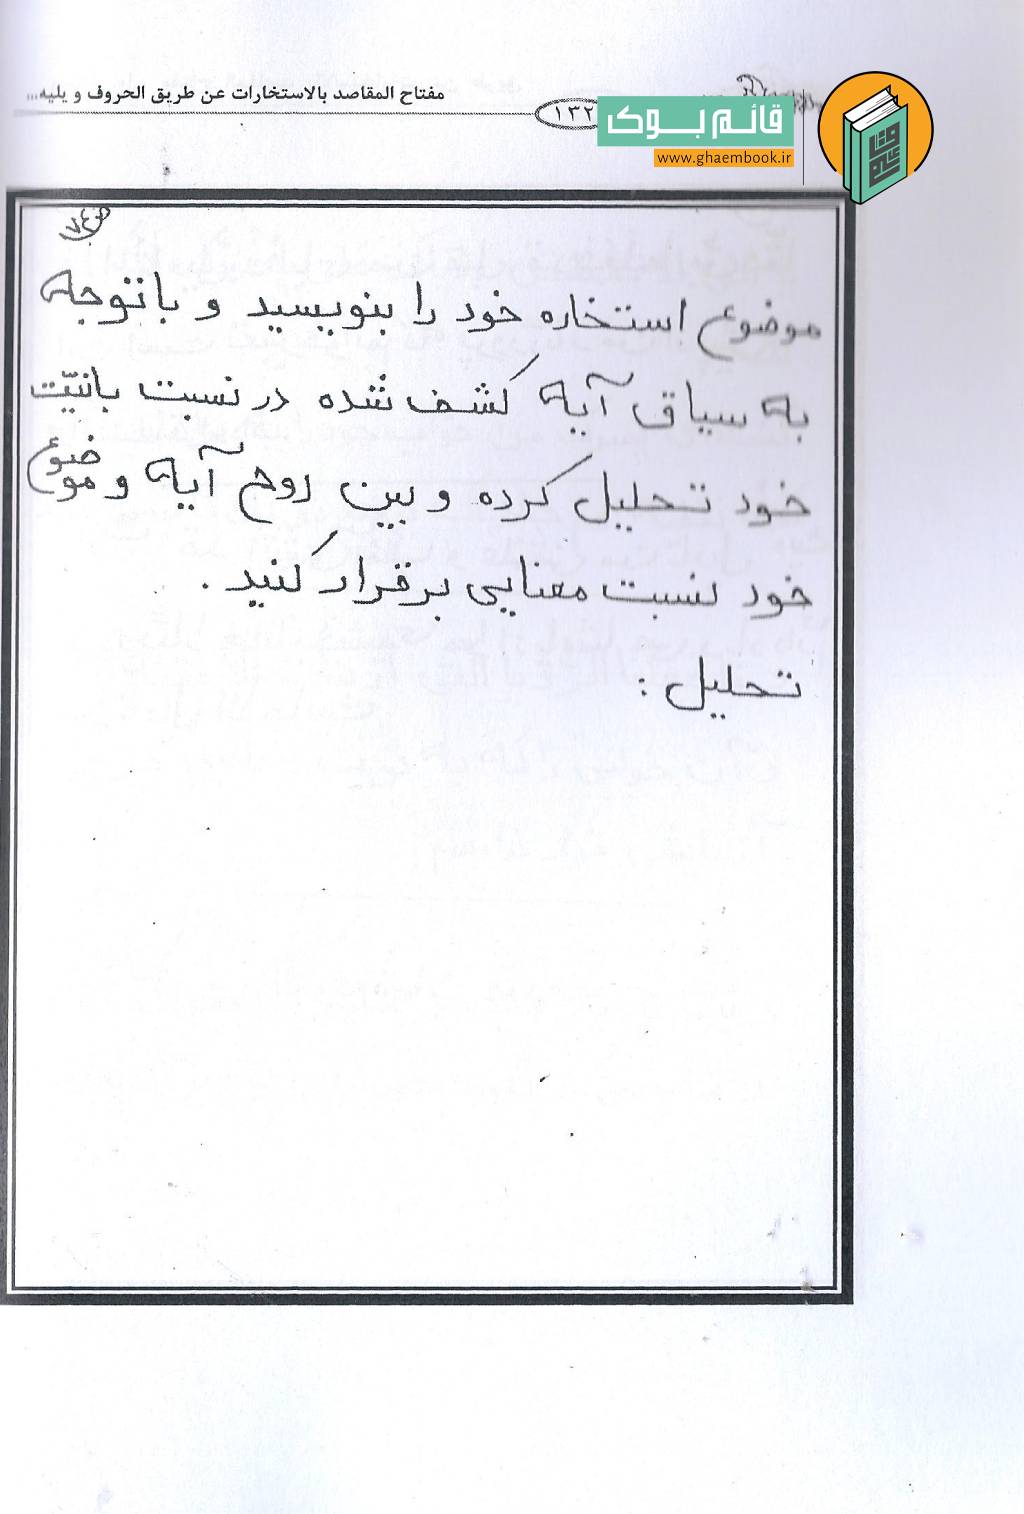 مفتاح المقاصد بالاستخارات عن طریق الحروف و یلیه...
۱۳۲
قائم بوک
www.ghaembook.ir
موضوع استخاره خود را بنویسید و باتوجه
به سیاق آیه کشف شده در نسبت بانیّت
خود تحلیل کرده و بین روح آیه و موضوع
خود نسبت معنایی برقرار کنید .
تحلیل :